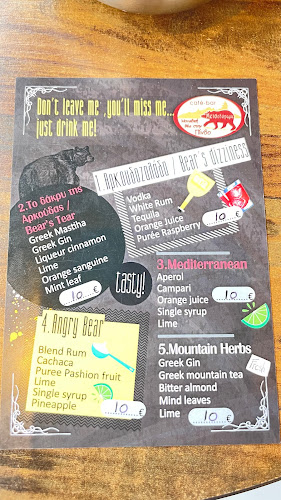 Don't leave me ,you'll miss me...
just drink me!
café-bar
Πίνδο
1 Αρκουδοζαλάδα / Bear's dizziness
Vodka
White Rum
Tequila
Orange Juice
Purée Raspberry
10 €
2.Το δάκρυ της
Αρκούδας /
Bear's Tear
Greek Mastiha
Greek Gin
Liqueur cinnamon
Lime
Orange sanguine
Mint leaf
10 €
tasty!
3.Mediterranean
Aperol
Campari
Orange juice
Single syrup
Lime
10 €
4.Angry Bear
Blend Rum
Cachaca
Puree Pashion fruit
Lime
Single syrup
Pineapple
10 €
5.Mountain Herbs
Greek Gin
Greek mountain tea
Bitter almond
Mind leaves
Lime
10 €